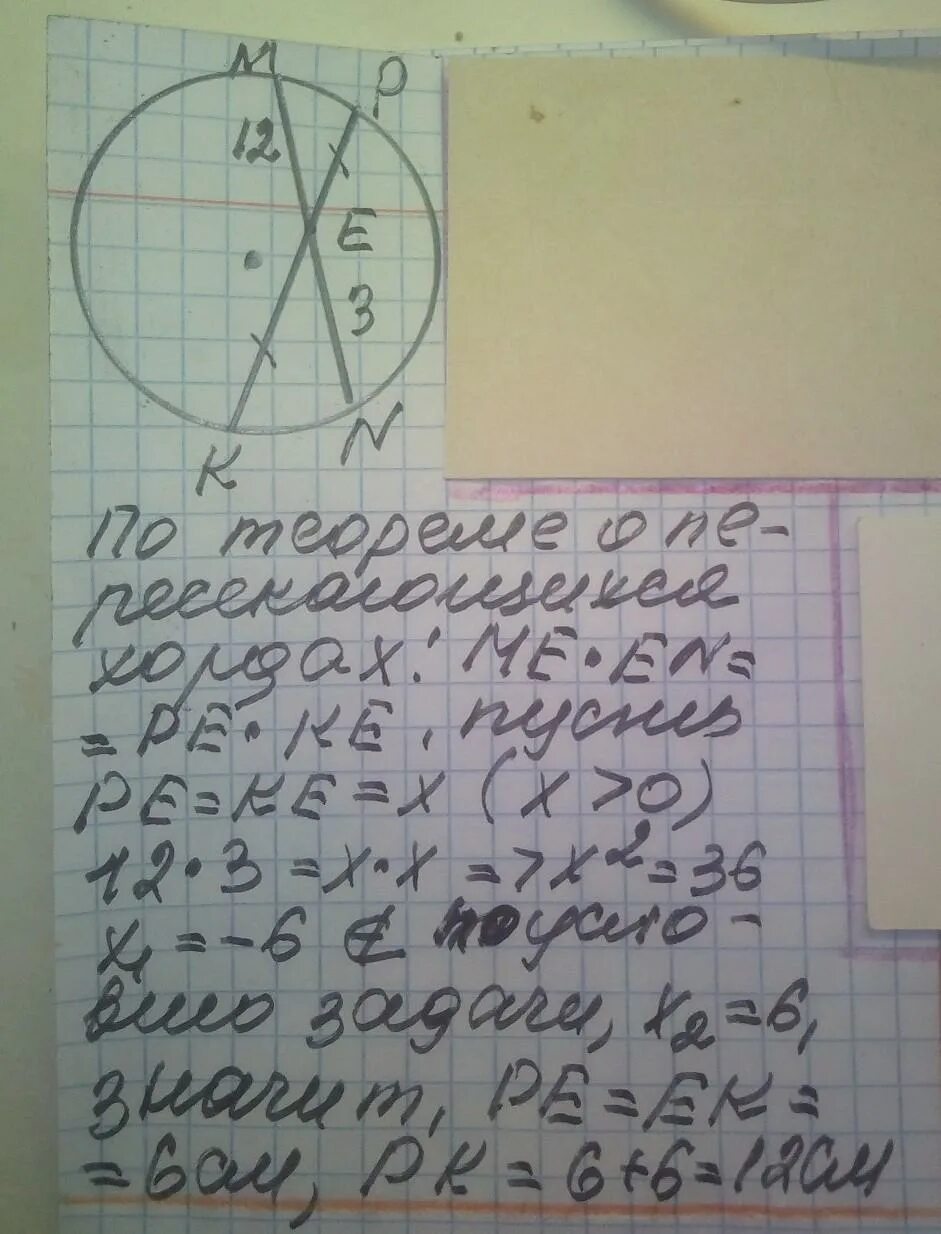 M
P
12
E
3
N
K
По теореме о пе-
ресекающихся
хордах: ME·EN=
= PE·KE, пусть
PE=KE=x (x>0)
12·3=x·x=>x²=36
x₁=-6 ∉ по усло-
вию задачи, x₂=6,
значит, PE=EK=
=6см, PK=6+6=12см